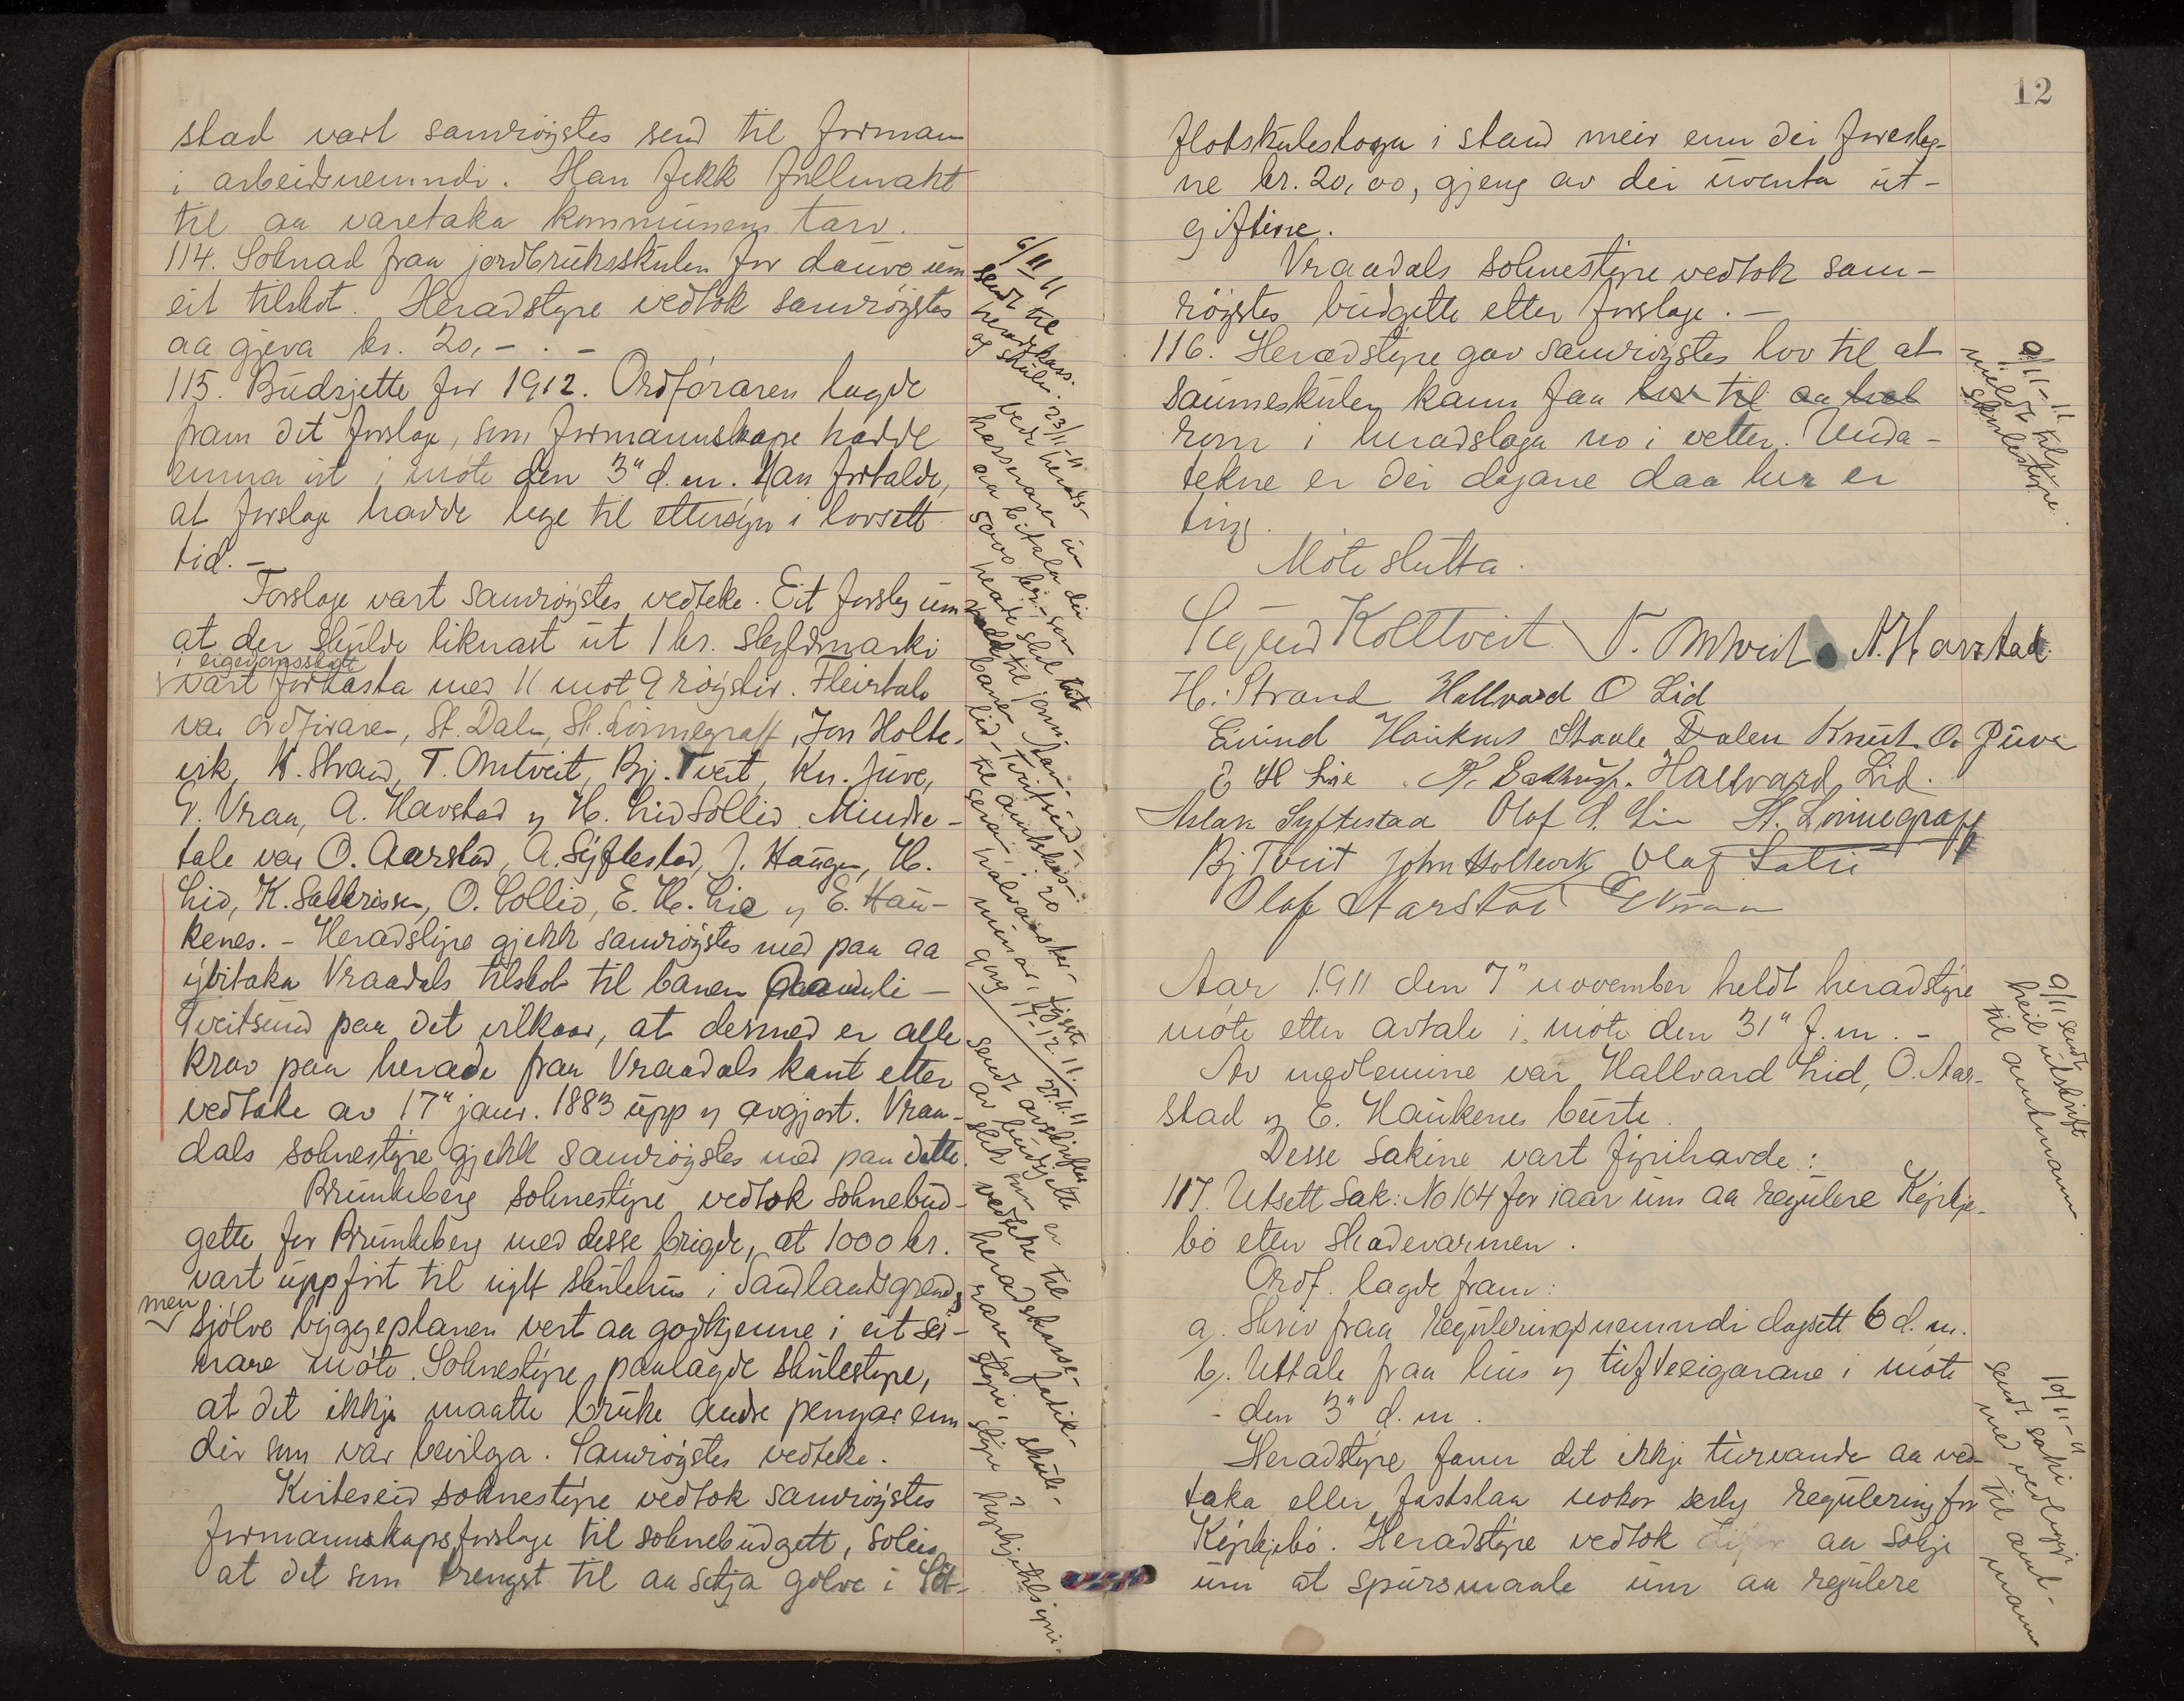 stad vart samrøystes send til formann
i arbeidsnemndi. Han fekk fullmakt
til aa varetaka kommunens tarv.
114. Søknad fraa jordbruksskulen for dauve um
eit tilskot. Heradstyre vedtok samrøystes
aa gjeva kr. 20,-. -
115. Budsjette for 1912. Ordføraren lagde
fram det forslage, som formannskape hadde
unna ut i møte den 3" d. m. Han fortalde,
at forslage hadde lege til ettersyn i lovsett
tid. -
Forslage vart samrøystes vedteke. Eit forslag um
at der skulde liknast ut 1 kr. skyldmarki
i eigedomsskatt
vart forkasta med 11 mot 9 røyster. Fleirtale
var ordføraren, St. Dalen, St. Lønnegraff, Jon Holte-
vik, H. Strand, T. Omtveit, Bj. Tveit, Kn. Juve,
G. Vraa, A. Havstad og H. Lid Sollid. Mindre-
tale var O. Aarstad, A. Syftestad, J. Haugen, H.
Lid, K. Salkrissen, O. Sollid, E. H. Lie og E. Hau-
kenes. - Heradstyre gjekk samrøystes med paa aa
yvitaka Vraadals tilskot til banen Aamli -
Tveitsund paa det vilkaar, at dermed er alle
krav paa herade fraa Vraadals kant etter
vedtake av 17" januar. 1883 upp og avgjort. Vraa-
dals soknestyre gjekk samrøystes med paa dette.
Brunkeberg soknestyre vedtok soknebud-
gette for Brunkeberg med desse brigde, at 1000 kr.
vart uppført til nytt skulehus i Sandlandsgrend,
men
sjølve byggeplanen vert aa godkjenne i eit sei-
nare møte. Soknestyre paalagde skulestyre,
at det ikkje maatte bruke andre pengar enn
dei som var bevilga. Samrøystes vedteke.
Kviteseid soknestyre vedtok samrøystes
formannskapsforslage til soknebudgett, soleis
at det som trengst til aa setja golve i Flot-
6/11 11
sendt til
heradskass.
og skulen.
23/11-11
bede herads-
kasseraren um
aa betala dei
5000 kr. - som
herade skal
til jarnbanen
sendt avskrift
av budgette
slik som er
vedteke til
heradskasse-
raren, fatik-
styre, skule-
styre,
12
flotskulestoga i stand meir enn dei foresleg-
ne kr. 20,00, gjeng av dei uventa ut-
giftine.
Vraadals soknestyre vedtok sam-
røystes budgette etter forslage. -
116. Heradstyre gav samrøystes lov til at
saumeskulen kann faa lov til aa hal
rom i heradstoga no i vetter. Unda-
tekne er dei dagane daa her er
ting.
Møte slutta.
Sigurd Kolltveit T. Omtveit A. Havstad.
H. Strand Hallvard O Lid
Eivind Haukenes Staale Dalen Knut O. Juve
E H Lie . K. Salkrissn. Hallvard Lid.
Aslak Syftestad Olaf S. Lie St. Lønnegraff
Bj Tveit John Holtevik Olaf Solli
Olaf Aarstad G Vraa
Aar 1911 den 7" november heldt heradstyre
møte etter avtale i møte den 31" f. m. -
Av medlemine var Hallvard Lid, O. Aar-
stad og E. Haukenes burte.
Desse sakine vart fyrihavde:
117. Utsett sak: No 104 for iaar um aa regulere Kyrkje-
bø etter skadevarmen.
Ordf. lagde fram:
a). Skriv fraa reguleringsnemndi dagsett 6 d. m.
b). Uttale fraa hus og tufteeigarane i møte
- den 3" d. m.
Heradstyre fann det ikkje turvande aa ved-
taka eller fastslaa nokor serleg regulering for
Kyrkjebø. Heradstyre vedtok aa søkje
um at spursmaale um aa regulere
9/11-11
meldt til
skulestyre.
9/11 sendt
heil utskrift
til amtmann
10/11-11
sendt saki
med vedlegg
til amt-
mann